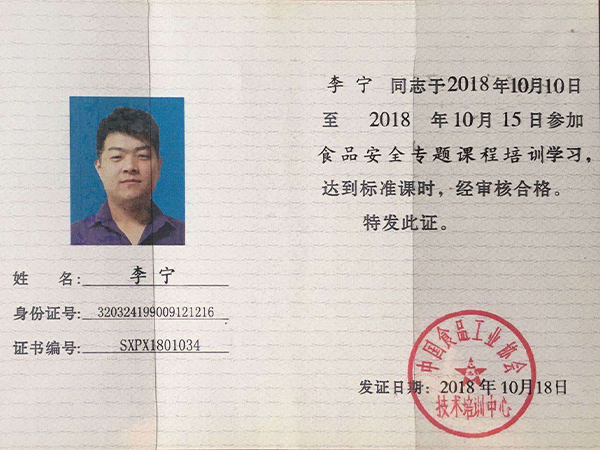 李宁 同志于2018年10月10日
至 2018 年10月15日参加
食品安全专题课程培训学习，
达到标准课时，经审核合格。
特发此证。
姓 名: 李宁
身份证号: 320324199009121216
证书编号: SXPX1801034
中国食品工业协会
技术培训中心
发证日期: 2018年10月18日